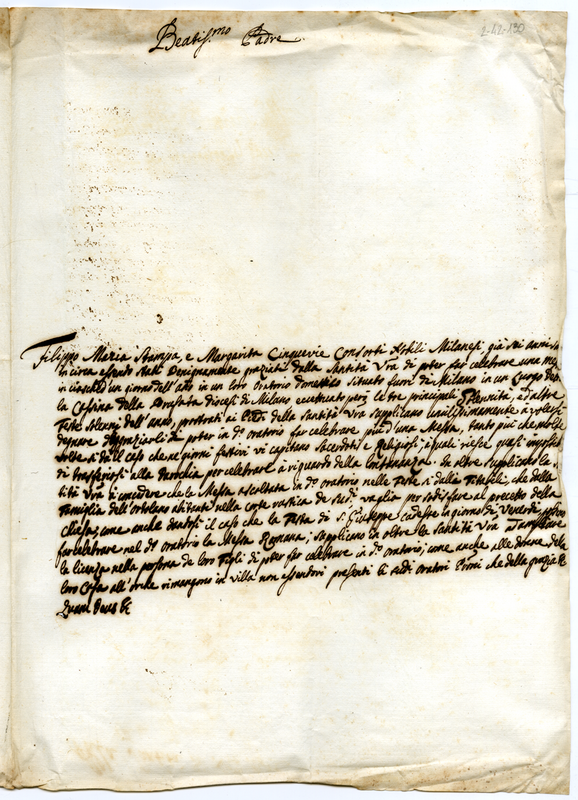 2-42-190
Beatis.mo Padre
Filippo Maria Stampa, e Margarita Cinquevie Consorti Nobili Milanesi già sei anni
in circa essendo stati Benignamente graziati dalla Santità Vra di poter far celebrare una
in ciasched'un giorno dell'año in un loro Oratorio domestico situato fuori di Milano in un Luogo
la Cassina della diocesi di Milano eccettuato però le tre principali Solennità, ed altre
Feste Solenni dell'anno, prostrati ai della Santità Vra supplicano umilissimamente a
degnare di poter in do. oratorio far celebrare più d'una Messa, tanto più che molte
volte si dà il caso che ne giorni festivi vi capitano Sacerdoti e Religiosi, a quali riesce quasi
di trasferirsi alla Parochia per celebrare a riguardo della lontananza. In oltre supplicano la
tità Vra a concedere che la Messa ascoltata in do. oratorio nelle Feste si dalla
Famiglia dell'ortolano abitante nella corte rustica de vaglia per sodisfare al precetto della
Chiesa, come anche dandosi il caso che la Festa di S. Giuseppe cadesse in giorno di Venerdì
far celebrare nel do. oratorio la Messa Romana; supplicano in oltre la Santità Vra
la licenza nella persona de loro Figli di poter far celebrare in do. oratorio, come anche alle donne della
loro Casa all'or che rimangono in villa non essendovi presenti li sudi. oratori che della grazia &
Quam Deus &